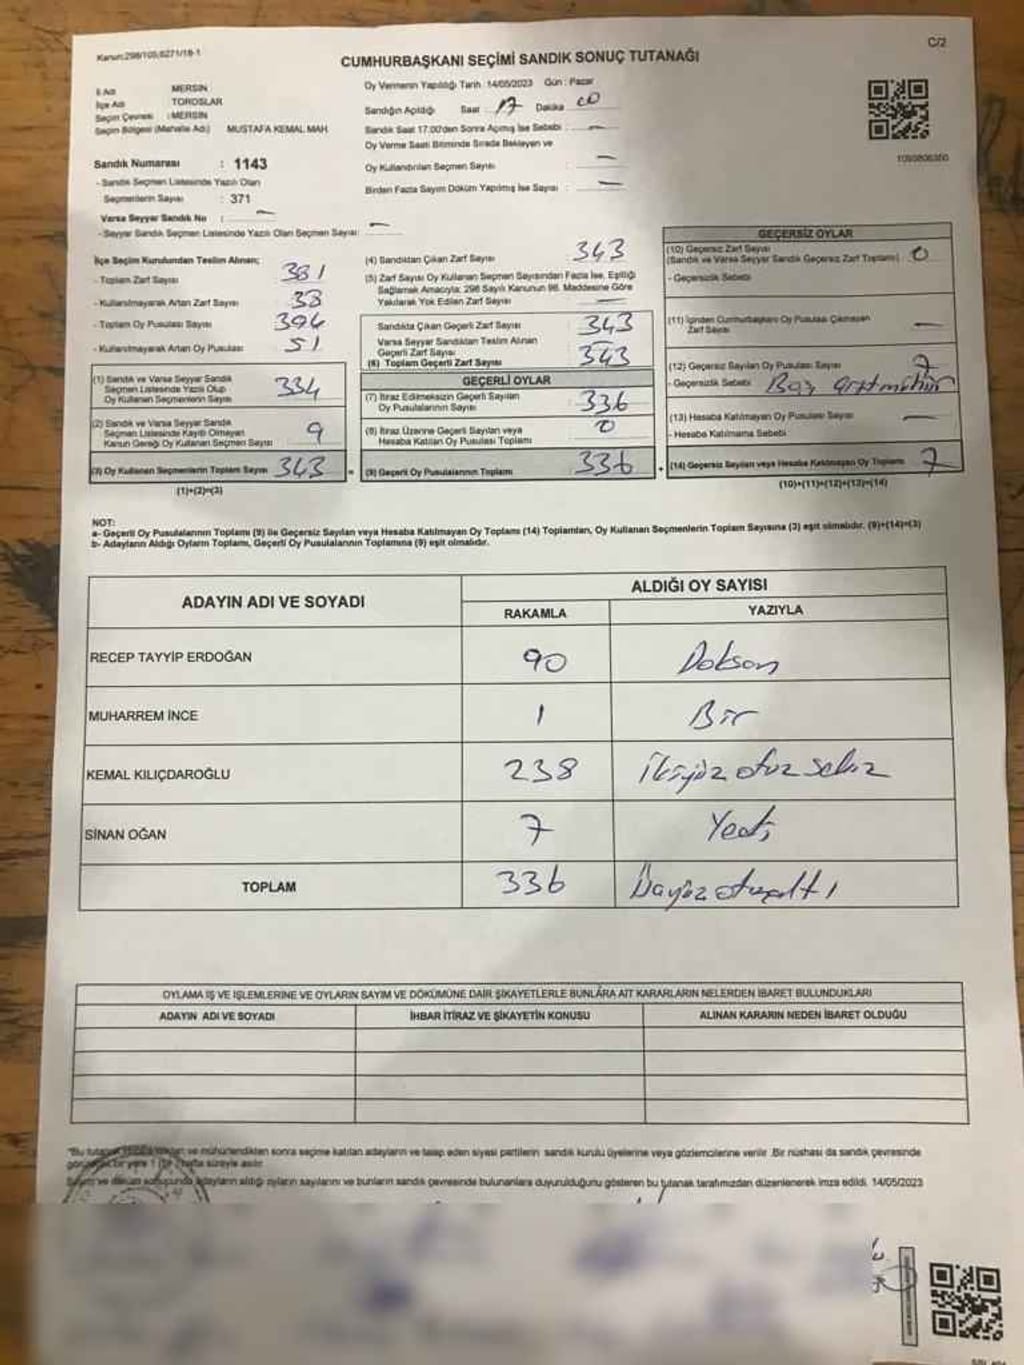 Kanun:298/105,6271/18-1
C/2
CUMHURBAŞKANI SEÇİMİ SANDIK SONUÇ TUTANAĞI
İl Adı : MERSİN
İlçe Adı : TOROSLAR
Seçim Çevresi : MERSİN
Seçim Bölgesi (Mahalle Adı) MUSTAFA KEMAL MAH.
Sandık Numarası : 1143
- Sandık Seçmen Listesinde Yazılı Olan
Seçmenlerin Sayısı : 371
Varsa Seyyar Sandık No : —
- Seyyar Sandık Seçmen Listesinde Yazılı Olan Seçmen Sayısı : —
Oy Vermenin Yapıldığı Tarih :14/05/2023 Gün : Pazar
Sandığın Açıldığı Saat : 17 Dakika 00
Sandık Saat 17:00'den Sonra Açılmış İse Sebebi : —
Oy Verme Saati Bitiminde Sırada Bekleyen ve
Oy Kullandırılan Seçmen Sayısı : —
Birden Fazla Sayım Döküm Yapılmış İse Sayısı : —
1093806350
İlçe Seçim Kurulundan Teslim Alınan;
- Toplam Zarf Sayısı 381
- Kullanılmayarak Artan Zarf Sayısı 38
- Toplam Oy Pusulası Sayısı 394
- Kullanılmayarak Artan Oy Pusulası 51
(1) Sandık ve Varsa Seyyar Sandık
Seçmen Listesinde Yazılı Olup
Oy Kullanan Seçmenlerin Sayısı 334
(2) Sandık ve Varsa Seyyar Sandık
Seçmen Listesinde Kayıtlı Olmayan
Kanun Gereği Oy Kullanan Seçmen Sayısı 9
(3) Oy Kullanan Seçmenlerin Toplam Sayısı 343
(1)+(2)=(3)
(4) Sandıktan Çıkan Zarf Sayısı 343
(5) Zarf Sayısı Oy Kullanan Seçmen Sayısından Fazla İse, Eşitliği
Sağlamak Amacıyla; 298 Sayılı Kanunun 98. Maddesine Göre
Yakılarak Yok Edilen Zarf Sayısı —
Sandıkta Çıkan Geçerli Zarf Sayısı : 343
Varsa Seyyar Sandıktan Teslim Alınan
Geçerli Zarf Sayısı : —
(6) Toplam Geçerli Zarf Sayısı : 343
GEÇERLİ OYLAR
(7) İtiraz Edilmeksizin Geçerli Sayılan
Oy Pusulalarının Sayısı : 336
(8) İtiraz Üzerine Geçerli Sayılan veya
Hesaba Katılan Oy Pusulası Toplamı : 0
= (9) Geçerli Oy Pusulalarının Toplamı : 336
GEÇERSİZ OYLAR
(10) Geçersiz Zarf Sayısı
(Sandık ve Varsa Seyyar Sandık Geçersiz Zarf Toplamı) 0
- Geçersizlik Sebebi
(11) İçinden Cumhurbaşkanı Oy Pusulası Çıkmayan
Zarf Sayısı —
(12) Geçersiz Sayılan Oy Pusulası Sayısı 7
- Geçersizlik Sebebi
(13) Hesaba Katılmayan Oy Pusulası Sayısı —
- Hesaba Katılmama Sebebi
+ (14) Geçersiz Sayılan veya Hesaba Katılmayan Oy Toplamı 7
(10)+(11)+(12)+(13)=(14)
NOT:
a- Geçerli Oy Pusulalarının Toplamı (9) ile Geçersiz Sayılan veya Hesaba Katılmayan Oy Toplamı (14) Toplamları, Oy Kullanan Seçmenlerin Toplam Sayısına (3) eşit olmalıdır. (9)+(14)=(3)
b- Adayların Aldığı Oyların Toplamı, Geçerli Oy Pusulalarının Toplamına (9) eşit olmalıdır.
ADAYIN ADI VE SOYADI
ALDIĞI OY SAYISI
RAKAMLA YAZIYLA
RECEP TAYYİP ERDOĞAN 90 Doksan
MUHARREM İNCE 1 Bir
KEMAL KILIÇDAROĞLU 238 İkiyüz otuz sekiz
SİNAN OĞAN 7 Yedi
TOPLAM 336 Üçyüz otuzaltı
OYLAMA İŞ VE İŞLEMLERİNE VE OYLARIN SAYIM VE DÖKÜMÜNE DAİR ŞİKAYETLERLE BUNLARA AİT KARARLARIN NELERDEN İBARET BULUNDUKLARI
ADAYIN ADI VE SOYADI İHBAR İTİRAZ VE ŞİKAYETİN KONUSU ALINAN KARARIN NEDEN İBARET OLDUĞU
ve mühürlendikten sonra seçime katılan adayların ve talep eden siyasi partilerin sandık kurulu üyelerine veya gözlemcilerine verilir. Bir nüshası da sandık çevresinde
bir yere 1 hafta süreyle asılır.
adayların aldığı oyların sayılarını ve bunların sandık çevresinde bulunanlara duyurulduğunu gösteren bu tutanak tarafımızdan düzenlenerek imza edildi. 14/05/2023